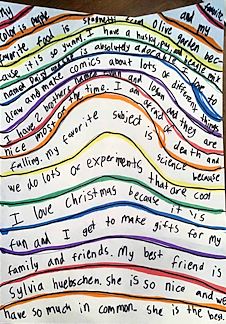 favorite
and my
color is purple. my
favorite food is spaghetti from Olive garden bec-
ause it is so yum! I have a husky, pug, and beagle mix
named and she is absolutely adorable. I love to
draw and make comics about lots of different things.
I have 2 brothers named Evan and Logan and they are
nice most of the time. I am afraid of death and
falling. my favorite subject is science because
we do lots of experiments that are cool
I love Christmas because it is
fun and I get to make gifts for my
family and friends. My best friend is
sylvia huebschen. she is so nice and we
have so much in common. she is the best.